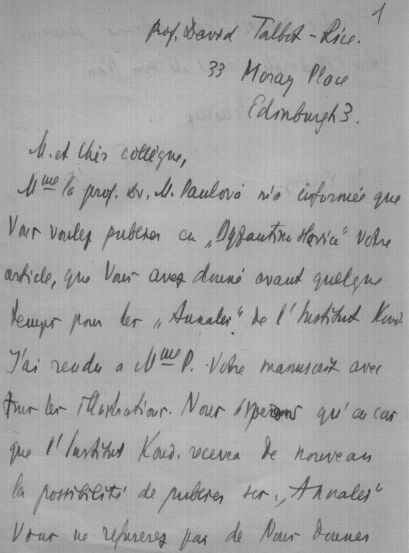 1
Prof. David Talbot-Rice.
33 Moray Place
Edinburgh 3.
M. et Cher collègue,
Mme la prof. Dr. M. Paulová m'a informée que
Vous voulez publier en „Byzantinoslavica" votre
article, que Vous avez donné avant quelque
temps pour les „Annales" de l'Institut Kond.
J'ai rendu a Mme P. Votre manuscrit avec
tous les illustrations. Nous espérons qu'en cas
que l'Institut Kond. recevra de nouveau
la possibilité de publier ses „Annales"
Vous ne refuserez pas de Nous donner